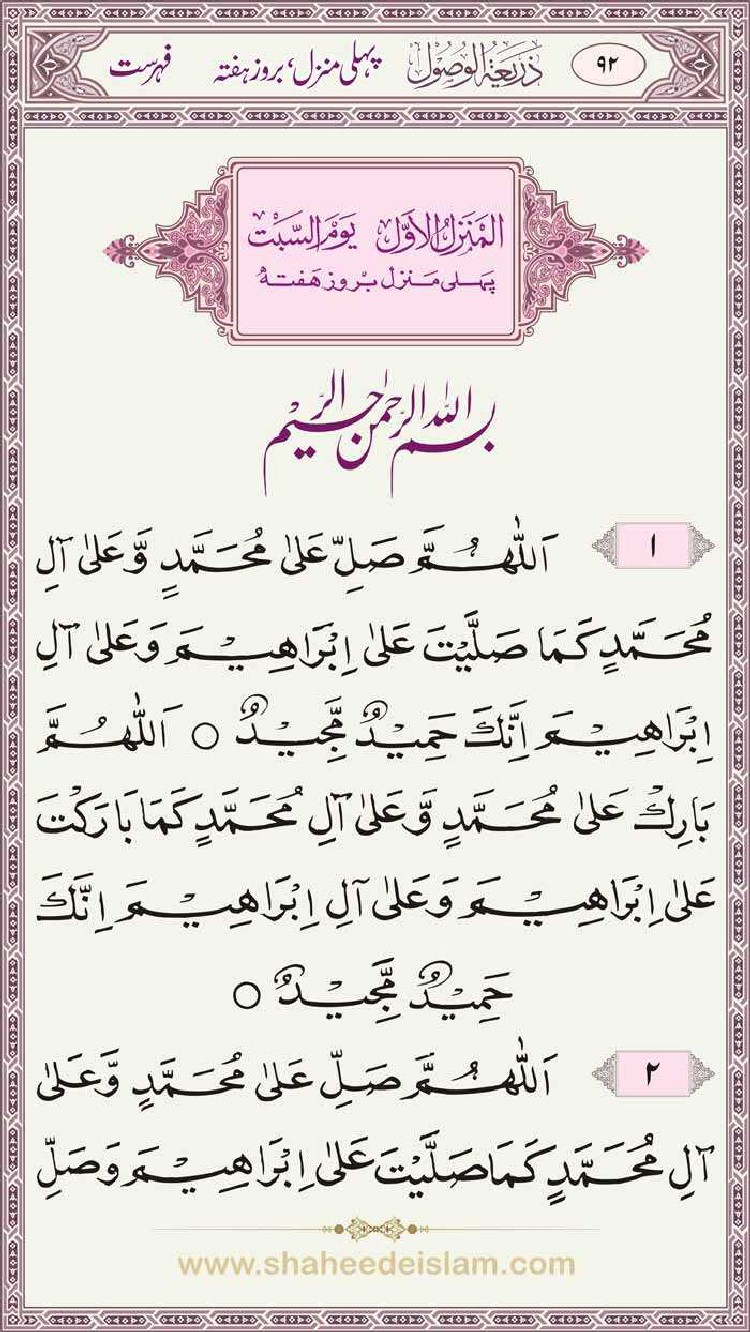 ۹۲ ذَرِيعَةُ الوُصُول پہلی منزل، بروز ہفتہ فہرست
اَلْمَنْزِلُ الْاَوَّل يَوْمَ السَّبْت
پہلی منزل بروز ہفتہ
بسم الله الرحمن الرحيم
۱ اَللّٰهُمَّ صَلِّ عَلٰى مُحَمَّدٍ وَّعَلٰى اٰلِ
مُحَمَّدٍ كَمَا صَلَّيْتَ عَلٰى اِبْرَاهِيْمَ وَعَلٰى اٰلِ
اِبْرَاهِيْمَ اِنَّكَ حَمِيْدٌ مَّجِيْدٌ ○ اَللّٰهُمَّ
بَارِكْ عَلٰى مُحَمَّدٍ وَّعَلٰى اٰلِ مُحَمَّدٍ كَمَا بَارَكْتَ
عَلٰى اِبْرَاهِيْمَ وَعَلٰى اٰلِ اِبْرَاهِيْمَ اِنَّكَ
حَمِيْدٌ مَّجِيْدٌ ○
۲ اَللّٰهُمَّ صَلِّ عَلٰى مُحَمَّدٍ وَّعَلٰى
اٰلِ مُحَمَّدٍ كَمَا صَلَّيْتَ عَلٰى اِبْرَاهِيْمَ وَصَلِّ
www.shaheedeislam.com